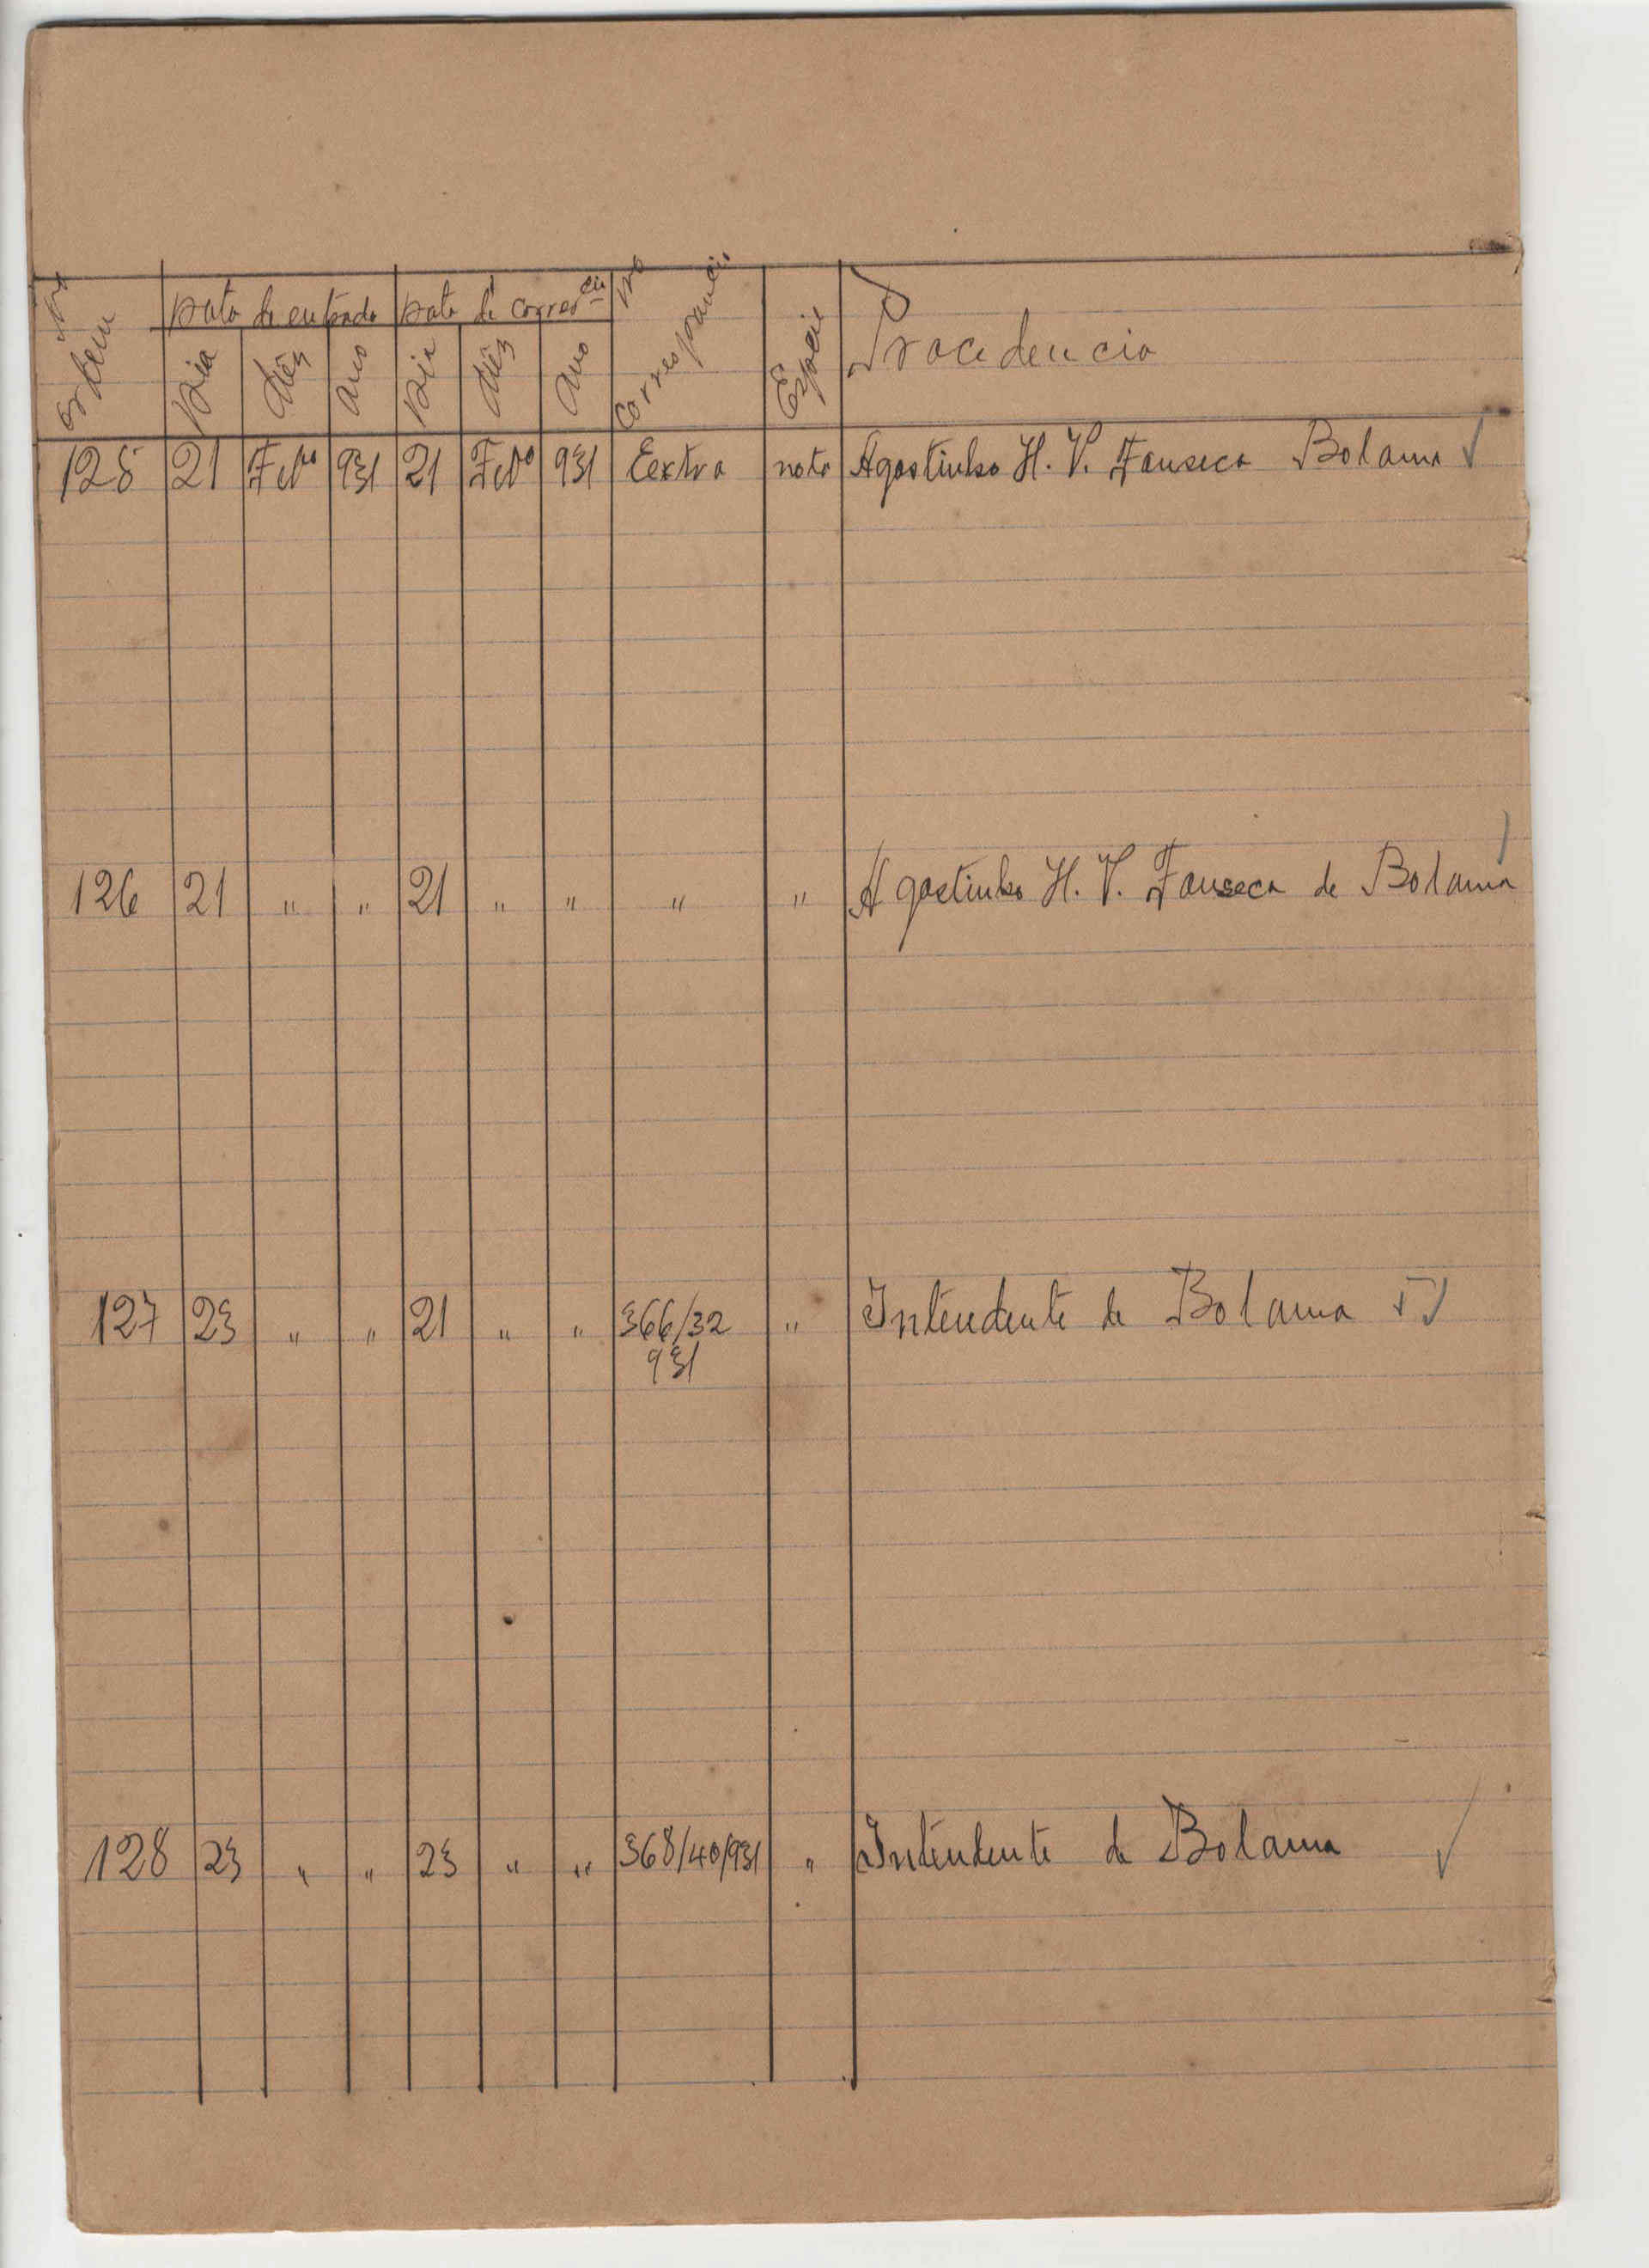 Nº ordem | Data de entrada | Data de corres.cia | Nº Correspondencia | Especie | Procedencia
Dia | Mês | Ano | Dia | Mês | Ano
125 | 21 | Fevº | 931 | 21 | Fevº | 931 | Eextra | nota | Agostinho H. V. Fonseca Bolama ✓
126 | 21 | " | " | 21 | " | " | " | " | Agostinho H. V. Fonseca de Bolama
127 | 23 | " | " | 21 | " | " | 366/32 | " | Intendente de Bolama
931
128 | 23 | " | " | 23 | " | " | 368/40/931 | " | Intendente de Bolama ✓